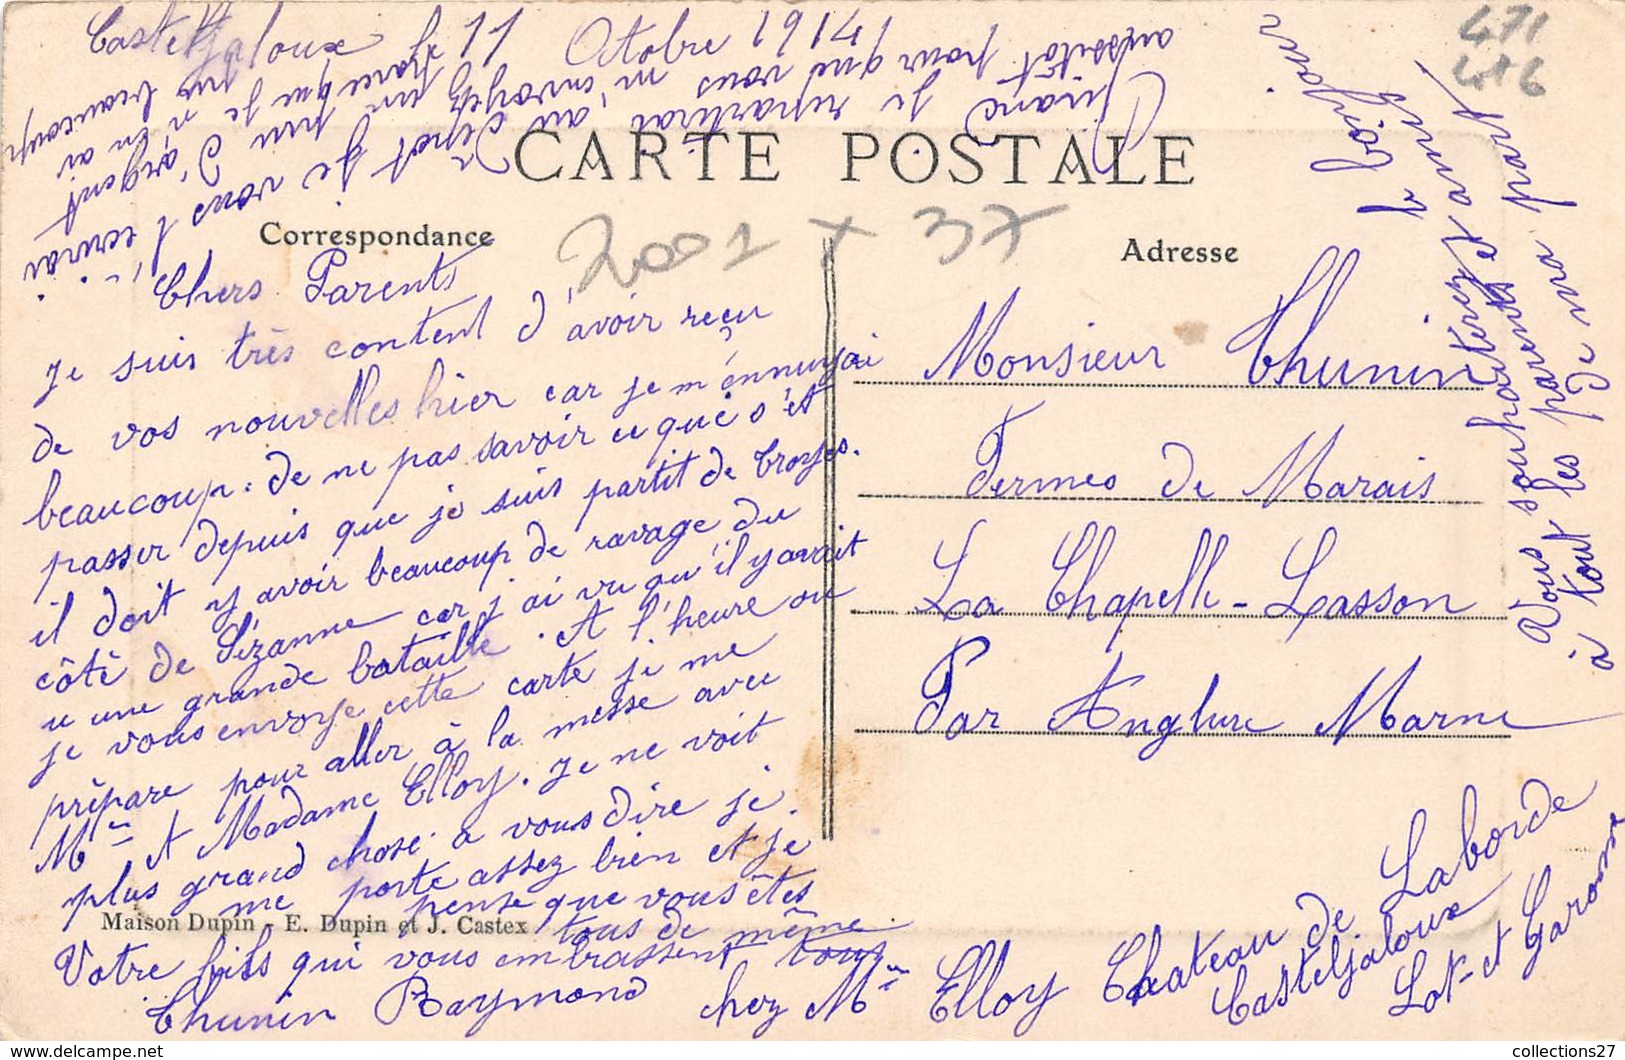 Casteljaloux le 11 Octobre 1914
CARTE POSTALE
Correspondance
Adresse
471
486
2001 x 37
Chers Parents
Je suis très content d'avoir reçu
de vos nouvelles hier car je m'énnuyai
beaucoup de ne pas savoir ce que s'et
passer depuis que je suis partit de Croyes.
il doit y avoir beaucoup de ravage du
côté de Sézanne car j'ai vu qu'il y avait
u une grande bataille. A l'heure ou
je vous envoye cette carte je me
prépare pour aller à la messe avec
Mr et Madame Elloy. Je ne voit
plus grand chose a vous dire je
me porte assez bien et je
pense que vous êtes
tous de même
Votre fils qui vous embrassent tous
Thunin Raymond chez Mr Elloy Chateau de Laborde
Casteljaloux
Lot-et Garonne
Maison Dupin - E. Dupin et J. Castex
Quand je repartirai au dépot je vous l'écrirai
aussitôt pour que vous m'envoyez un peu d'argent
parce que je n'en ai
pas beaucoup
Monsieur Thunin
Fermes de Marais
La Chapelle-Lasson
Par Anglure Marne
Vous souhaiterez le bonjour
à tout les parents et amis
de ma part.
collections27